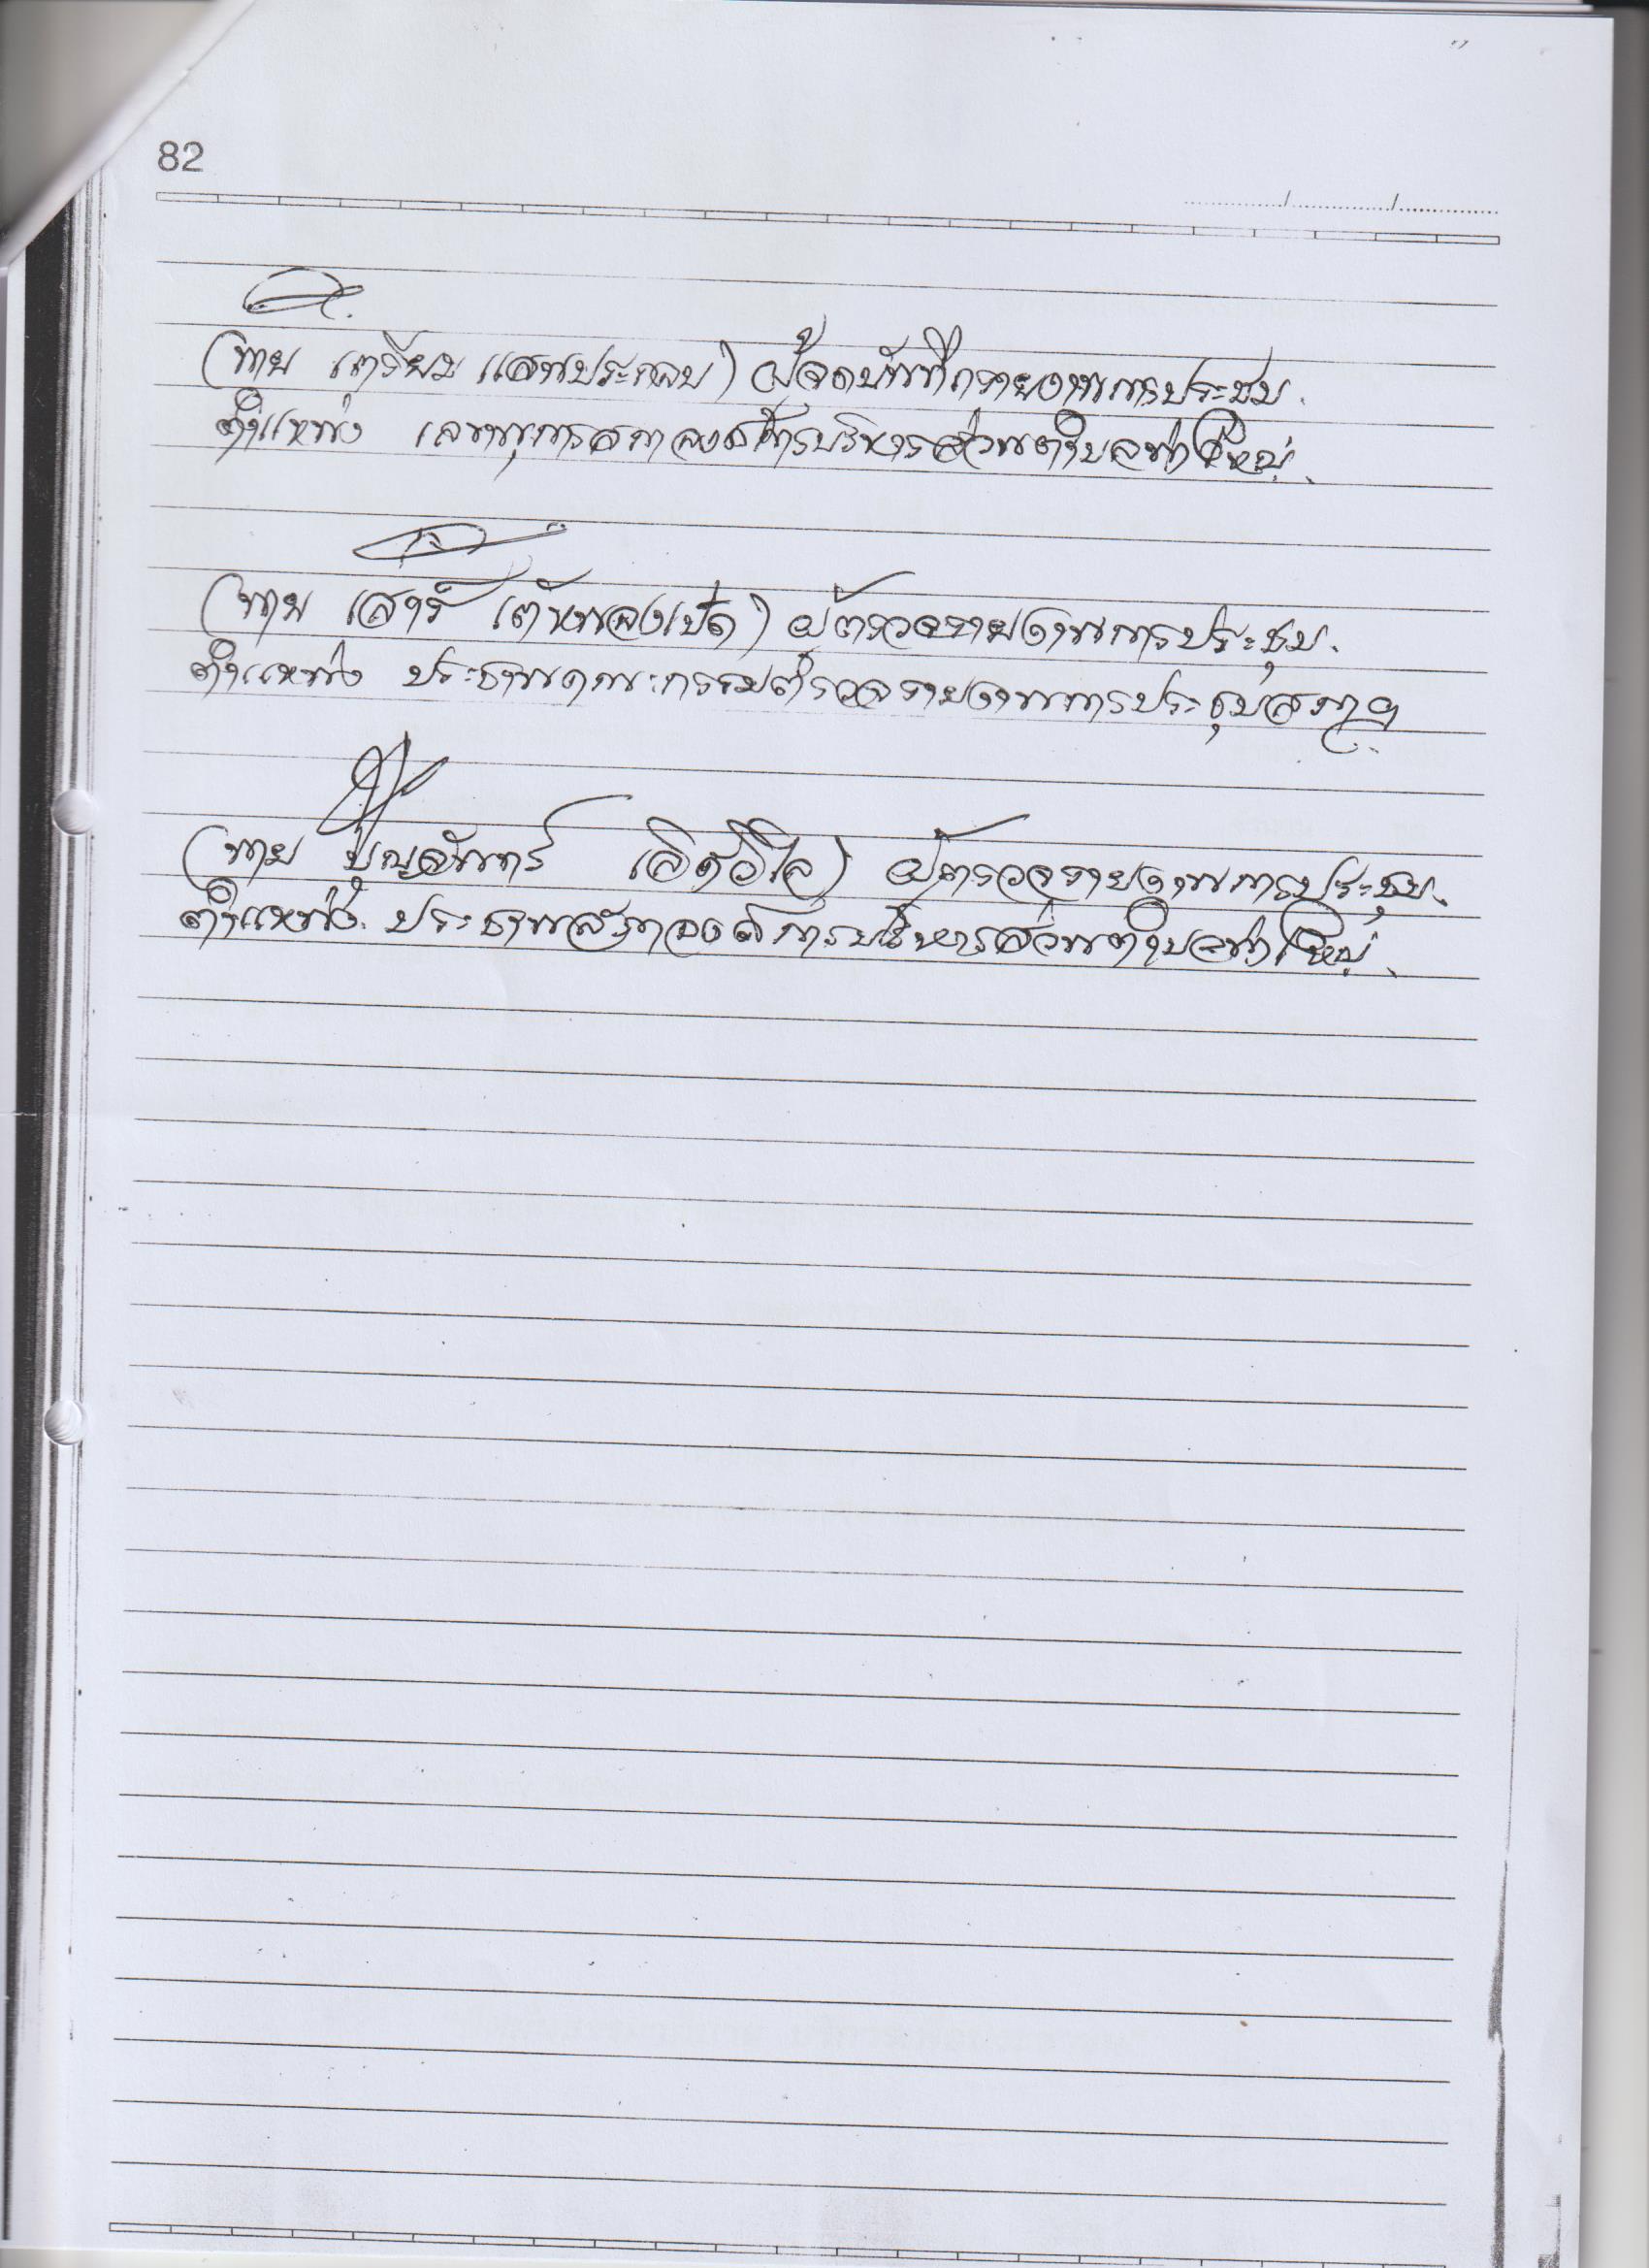 82
(นาย เตรียม แสนประกอบ) ผู้จดบันทึกรายงานการประชุม.
ตำแหน่ง เลขานุการสภาองค์การบริหารส่วนตำบลท่าใหญ่.
(นาย เสาร์ เต้าทองเปิด) ผู้ตรวจรายงานการประชุม.
ตำแหน่ง ประธานคณะกรรมตรวจรายงานการประชุมสภาฯ
(นาย บุญจันทร์ เลิศวิไล) ผู้ตรวจรายงานการประชุม.
ตำแหน่ง. ประธานสภาองค์การบริหารส่วนตำบลท่าใหญ่.